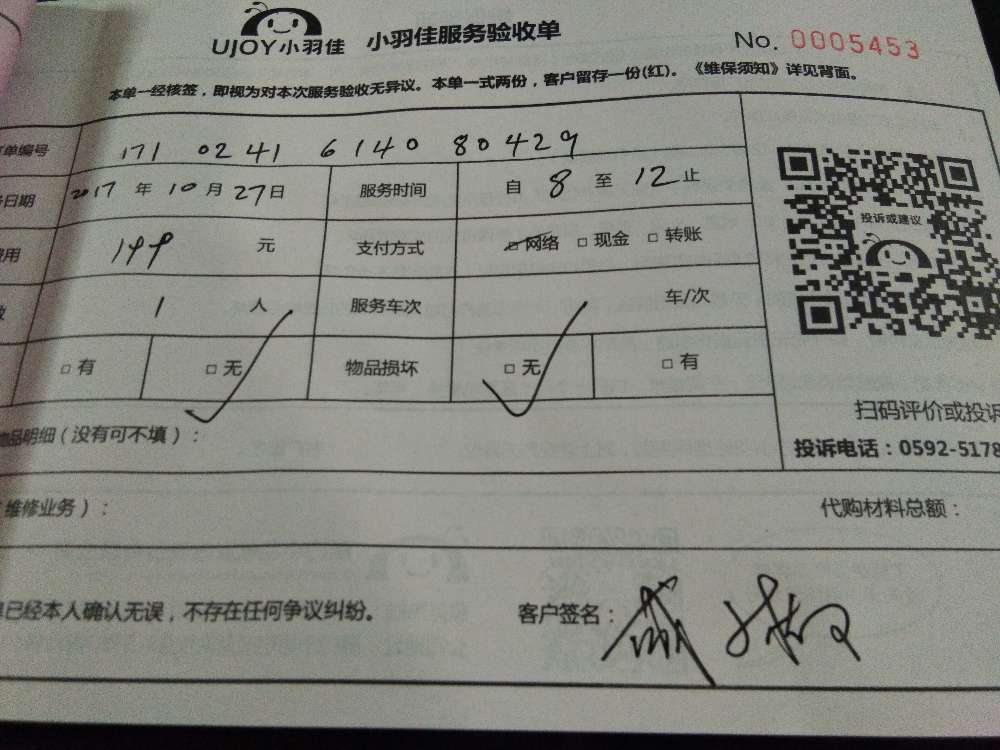 UJOY小羽佳 小羽佳服务验收单 No. 0005453
本单一经核签，即视为对本次服务验收无异议。本单一式两份，客户留存一份(红)。《维保须知》详见背面。
单编号 171 0241 6140 80429
日期 2017 年 10 月 27 日 服务时间 自 8 至 12 止
投诉或建议
费用 199 元 支付方式 □ 网络 □ 现金 □ 转账
1 人 服务车次 车/次
□ 有 □ 无 物品损坏 □ 无 □ 有
扫码评价或投诉
物品明细（没有可不填）：
投诉电话：0592-5178
维修业务）： 代购材料总额：
单已经本人确认无误，不存在任何争议纠纷。 客户签名：